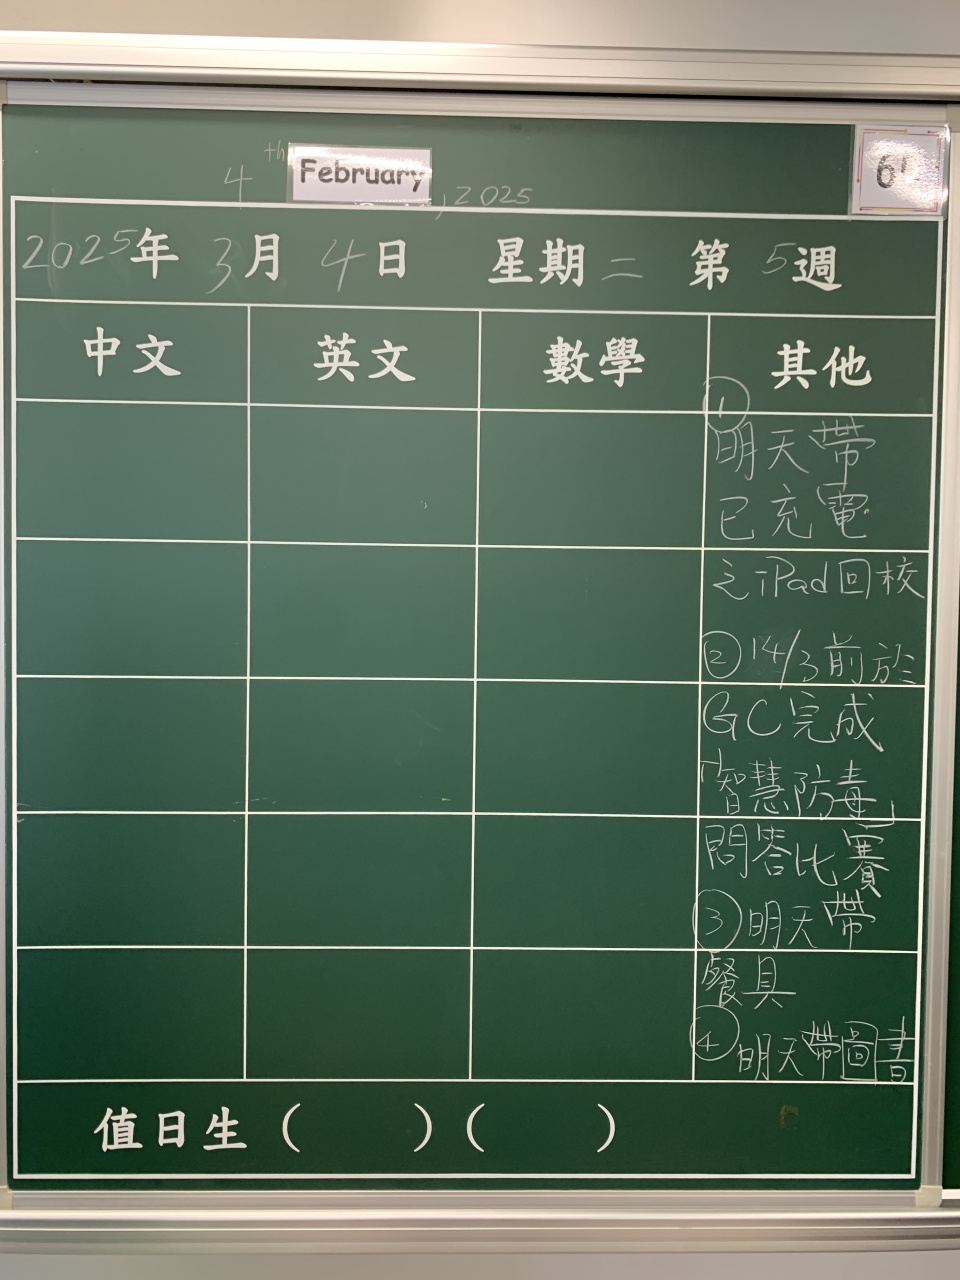 4th February, 2025
6
2025年 3月 4日 星期二 第5週
中文 英文 數學 其他
① 明天帶
已充電
之iPad回校
② 14/3前於
GC完成
「智慧防毒」
問答比賽
③ 明天帶
餐具
④ 明天帶圖書
值日生 ( ) ( )